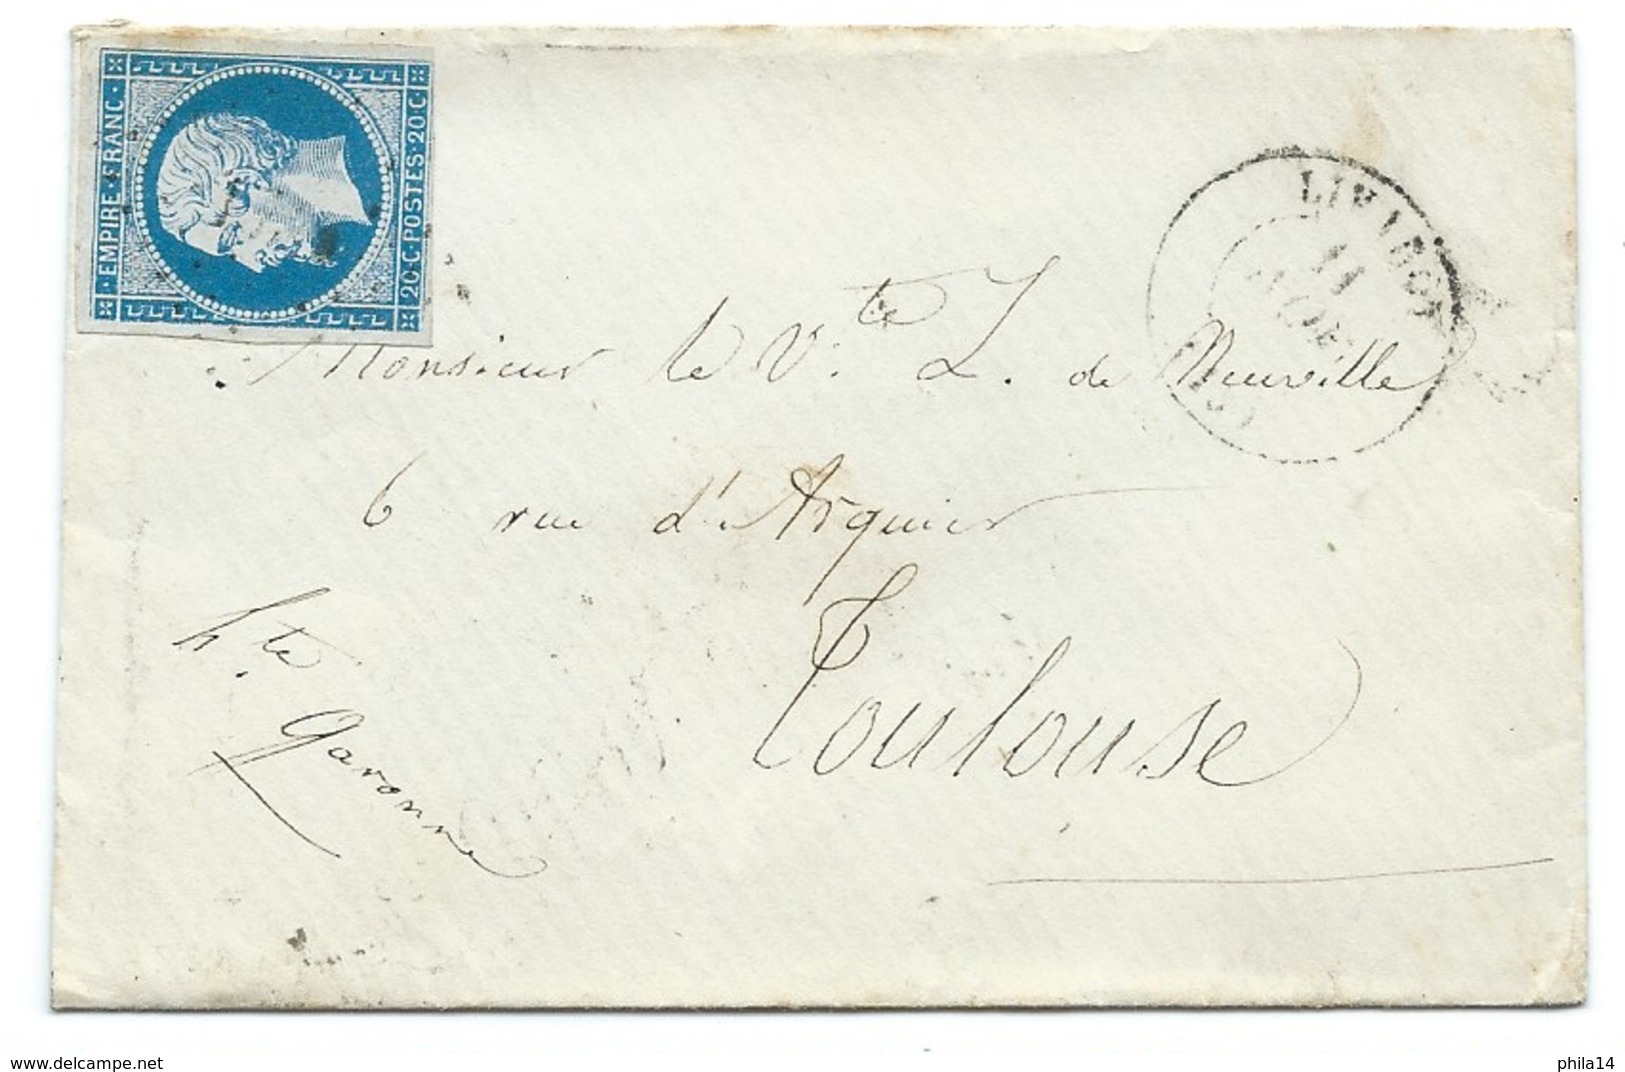 EMPIRE · FRANC ·
20 C · POSTES · 20 C ·
LIVAROT
11
AOU
(13)
Monsieur le V.te L. de Neuville
6 rue d'Arquier
Toulouse
h.te
Garonne
www.delcampe.net
phila14